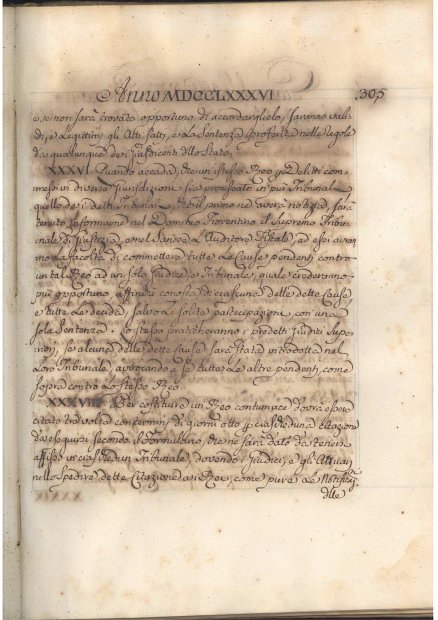 Anno MDCCLXXXVI 305
e se non sarà trovato opportuno di accordarglielo, saranno vali-
di, e Legittimi gli Atti fatti, e La Sentenza proferita nelle Regole
da qualunque dei Giusdicenti dello Stato.
XXXVI. Quando accada, che un istesso Reo p Delitti com-
messi in diverse Giurisdizioni sia processato in più Tribunali
quello dei detti Tribunali che il primo ne avera notizia, sarà
tenuto informarne nel Dominio Fiorentino il Supremo Tribu-
nale di Giustizia, o nel Sanese L'Auditore Fiscale, ed essi avran-
no La facoltà di commettere tutte Le Cause pendenti contro
un tal Reo ad un solo Giudice, o Tribunale, quale crederanno
più opportuno, affinchè conosca di ciascuna delle dette Cause
e tutte Le decida, salvo Le solite partecipazioni, con una
sola Sentenza. Lo stesso praticheranno i predetti Giudici Supe-
riori, se alcuna delle dette Cause sarà stata introdotta nel
Loro Tribunale, avocando a se tutte Le altre pendenti come
sopra contro Lo stesso Reo.
Per costituire un Reo contumace dovrà esser
citato tre volte con termini di giorni otto p ciascheduna citazione
da eseguirsi secondo il formulario, che ne sarà dato da tenersi
affisso in ciaschedun Tribunale dovendo i Giudici, e gli Attuarj
nello spedire dette Citazione ai Rei, come pure Le Notificaz
dlle